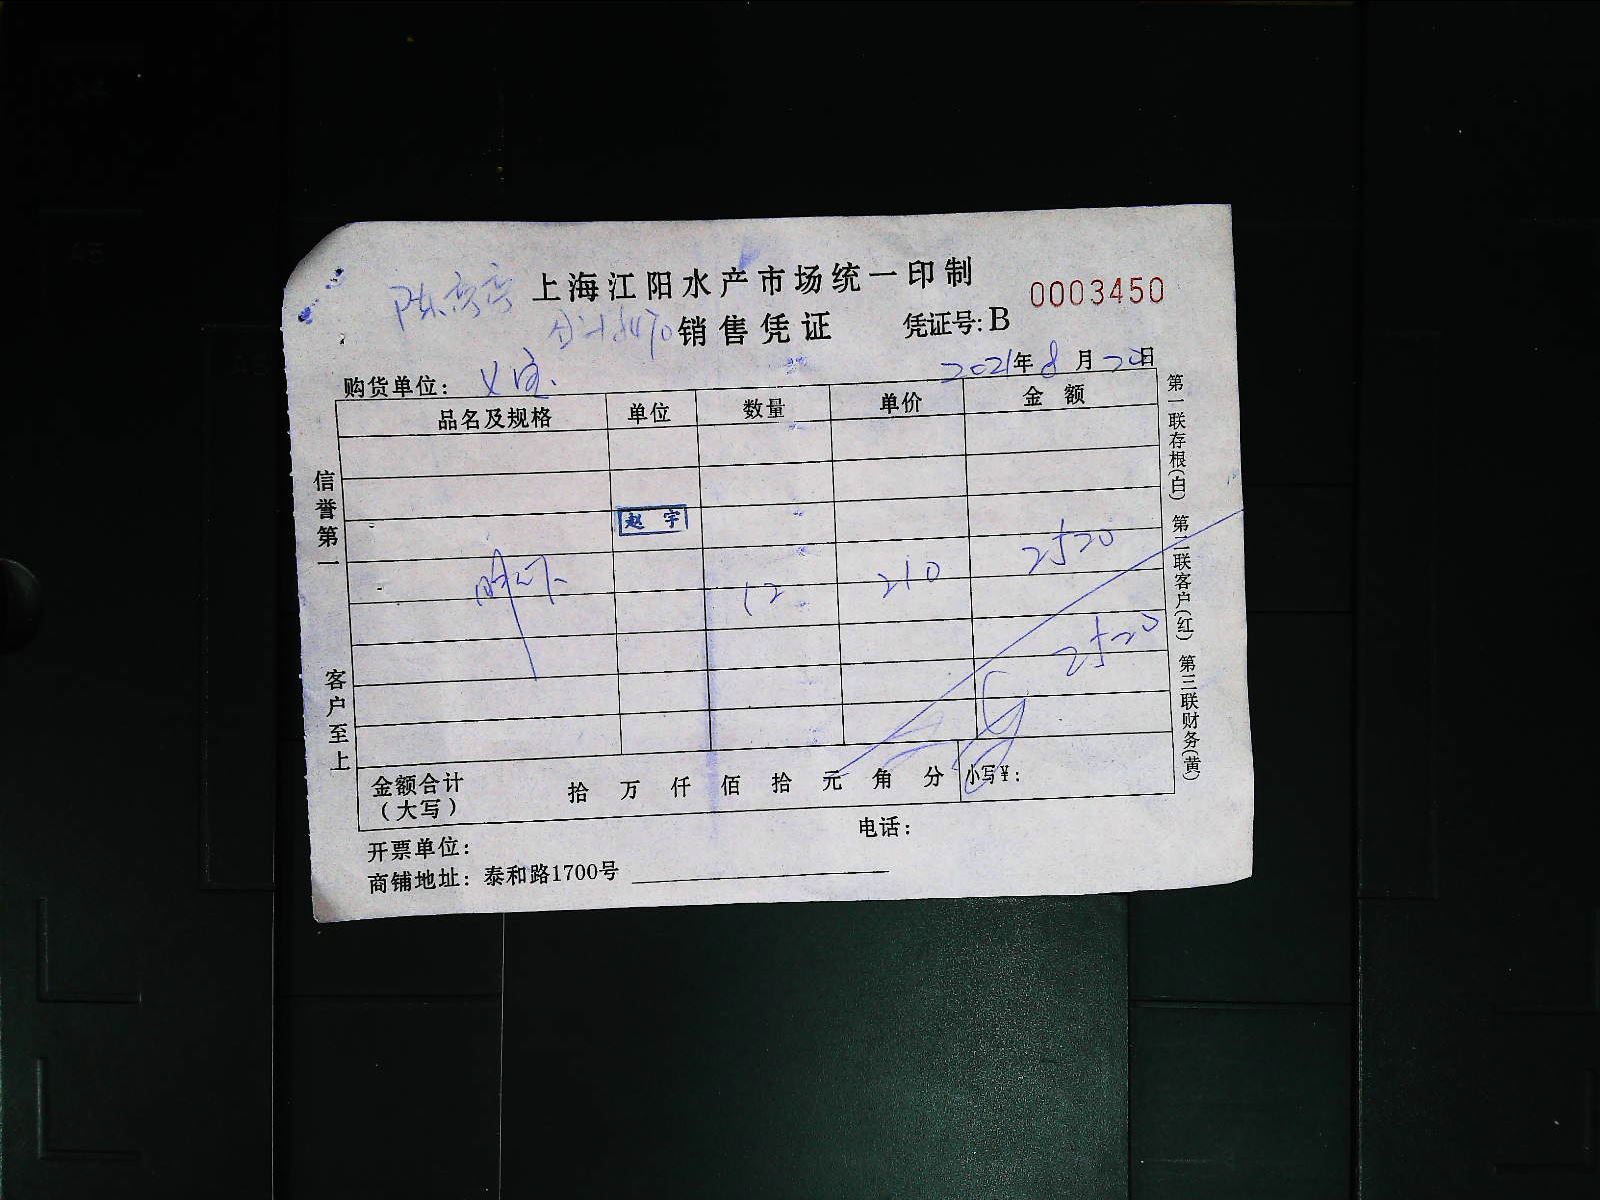 上海江阳水产市场统一印制
0003450
陈亮亮
合计8470
销售凭证
凭证号:B
购货单位:
2021年8月20日
品名及规格 单位 数量 单价 金额
赵宇
12 210 2520
2520
金额合计(大写) 拾 万 仟 佰 拾 元 角 分 小写¥:
开票单位: 电话:
商铺地址: 泰和路1700号
信誉第一
客户至上
第一联存根(白) 第二联客户(红) 第三联财务(黄)